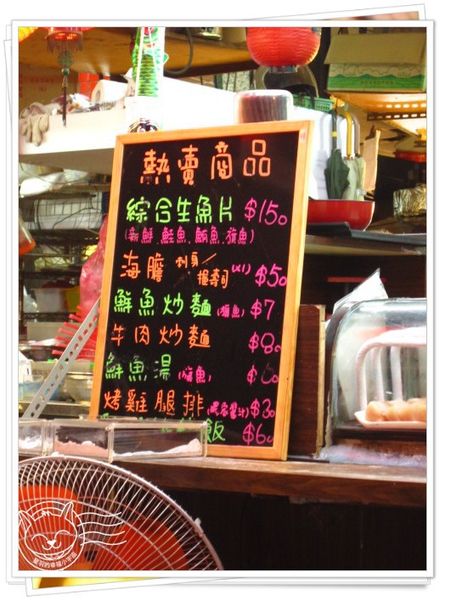 熱賣商品
綜合生魚片 $150
(新鮮.鮭魚.鮪魚.旗魚)
海膽 刺身/握壽司 (x1) $50
鮮魚炒麵 (旗魚) $7
牛肉炒麵 $80
鮮魚湯 (旗魚) $50
烤雞腿排 $30
飯 $60